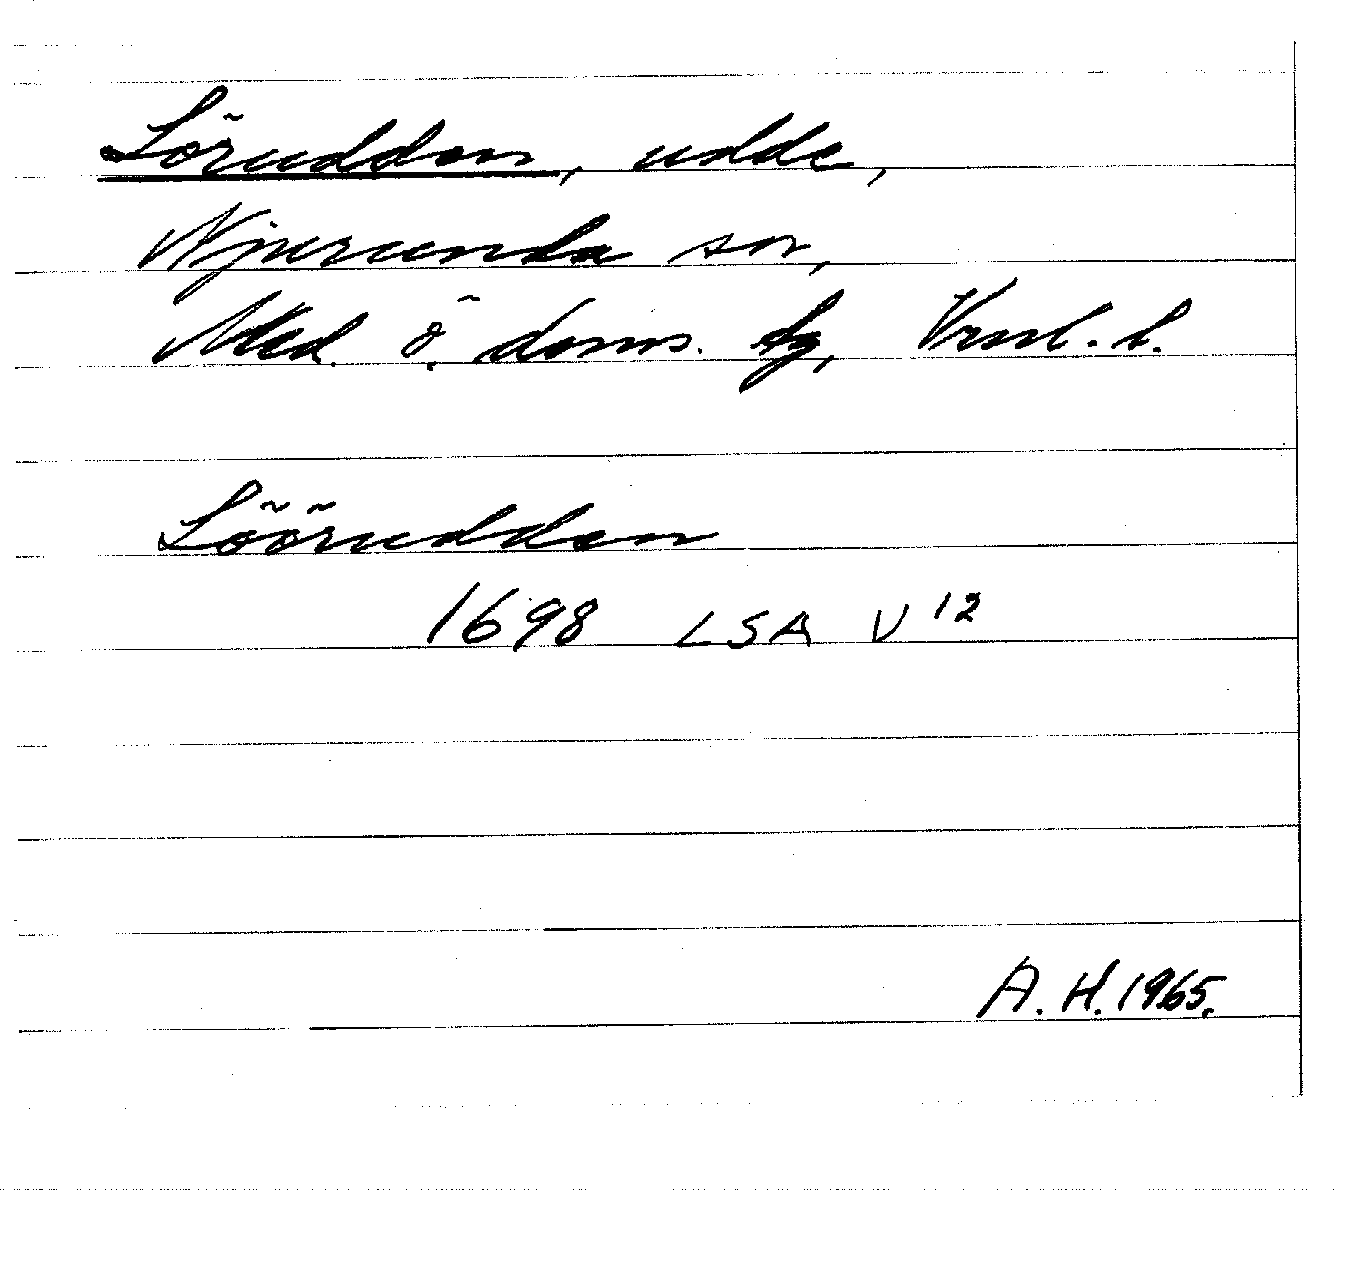 Lörudden, udde,
Njurunda sn,
Med. ö. doms. tg, Vnrl. l.
Löörudden
1698 LSA V 12
A. H. 1965.